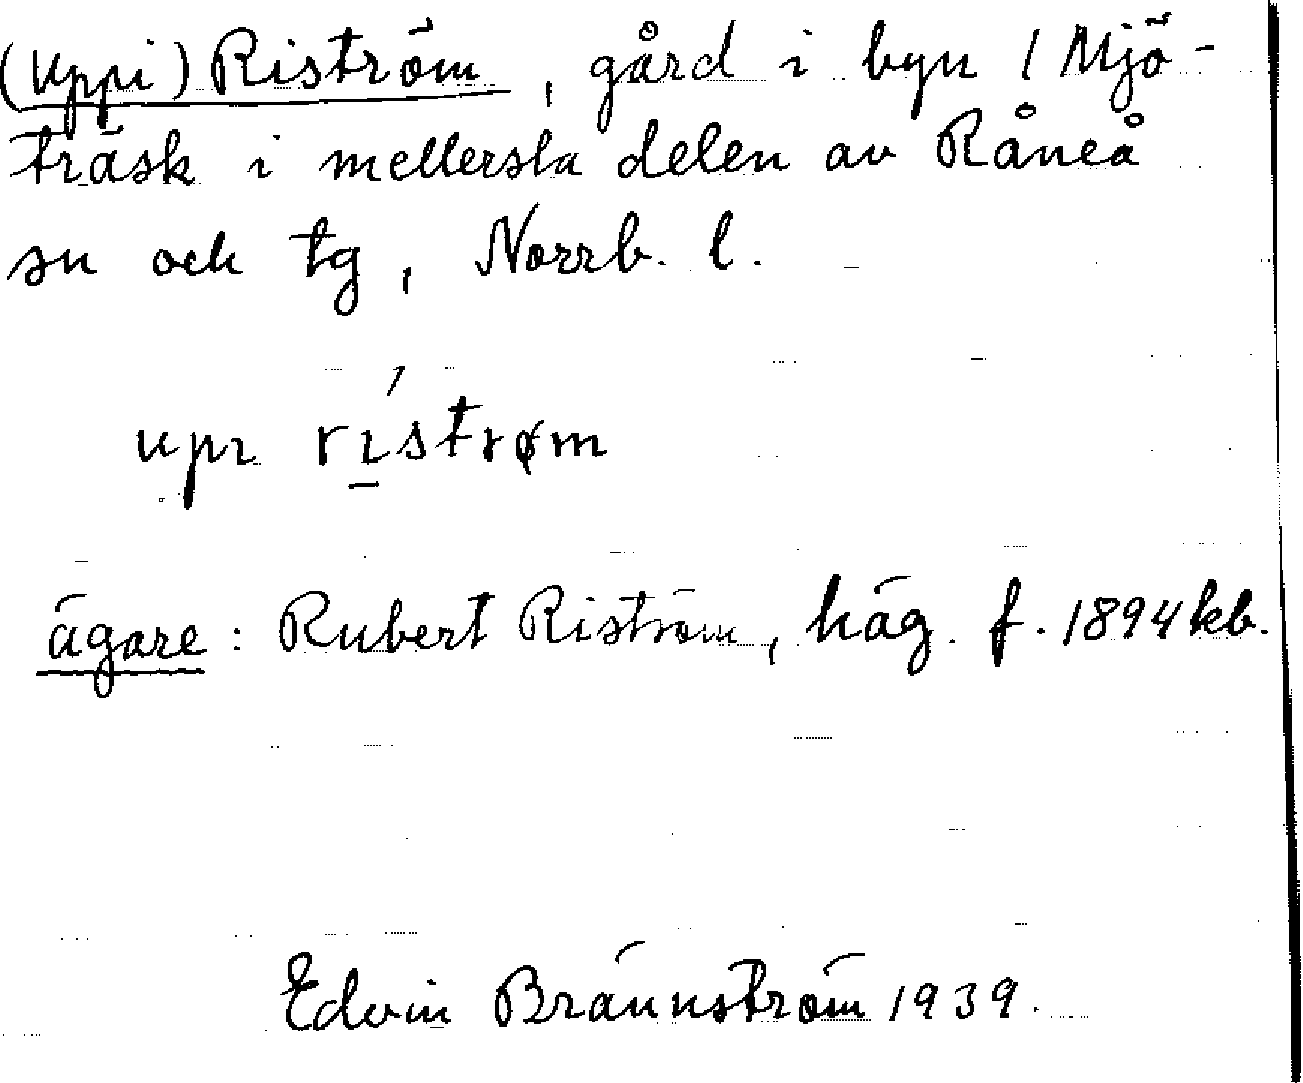 (Uppi) Riström, gård i byn 1 Mjö-
träsk i mellersta delen av Råneå
sn och tg, Norrb. l.
upɪ rɪ̱́strøm
ägare: Rubert Riström, häg. f. 1894 kb.
Edvin Brännström 1939.